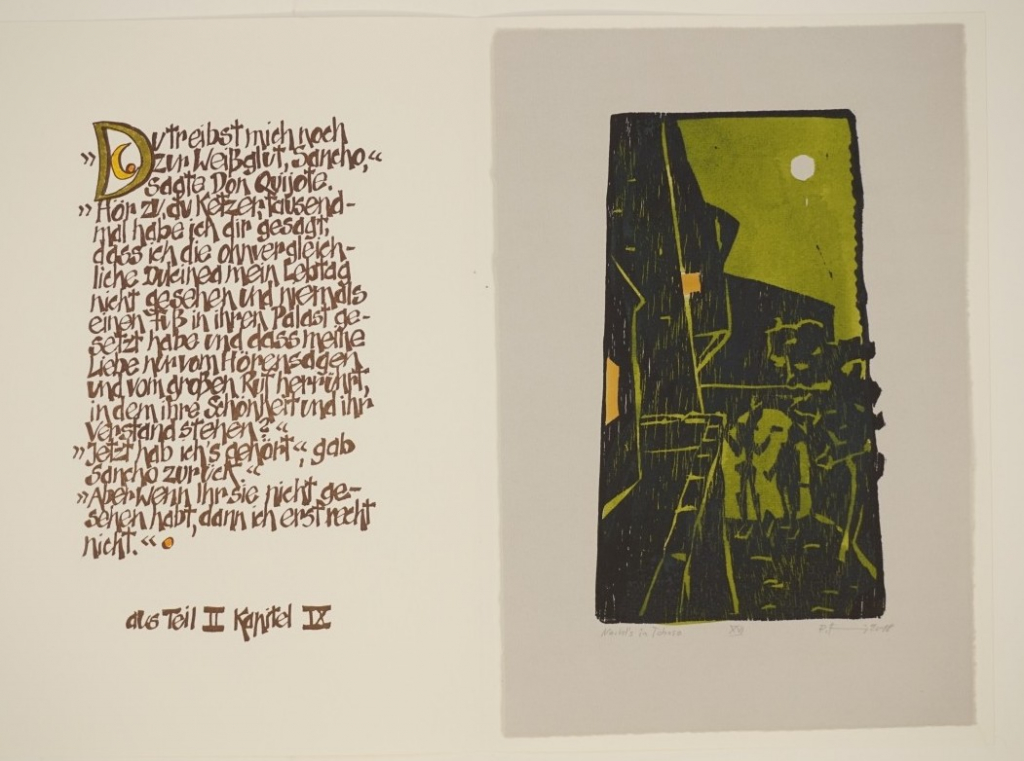 „Du treibst mich noch
zur Weißglut, Sancho,“
sagte Don Quijote.
„Hör zu, du Ketzer, tausend-
mal habe ich dir gesagt,
dass ich die ohnvergleich-
liche Dulcinea mein Lebtag
nicht gesehen und niemals
einen Fuß in ihren Palast ge-
setzt habe und dass meine
Liebe nur vom Hörensagen
und vom großen Ruf herrührt,
in dem ihre Schönheit und ihr
Verstand stehen?“
„Jetzt hab ich's gehört“, gab
Sancho zurück.“
„Aber wenn Ihr sie nicht ge-
sehen habt, dann ich erst recht
nicht.“
aus Teil II Kapitel IX
Nachts in Toboso